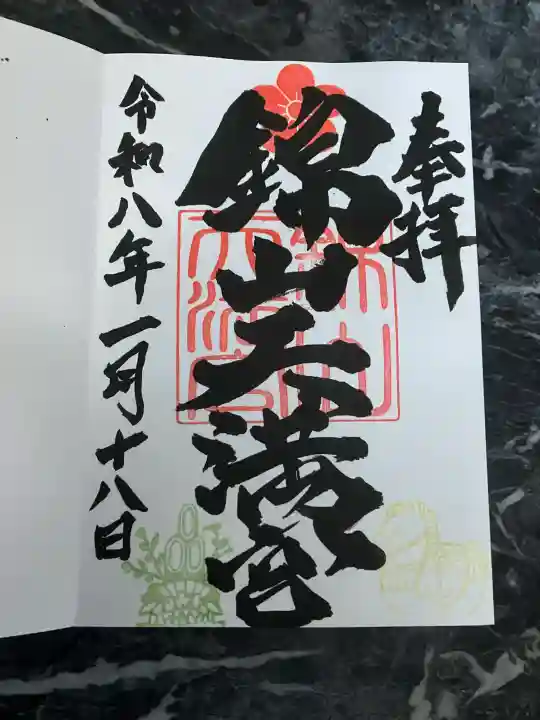 奉拝
錦山天満宮
令和八年一月十八日